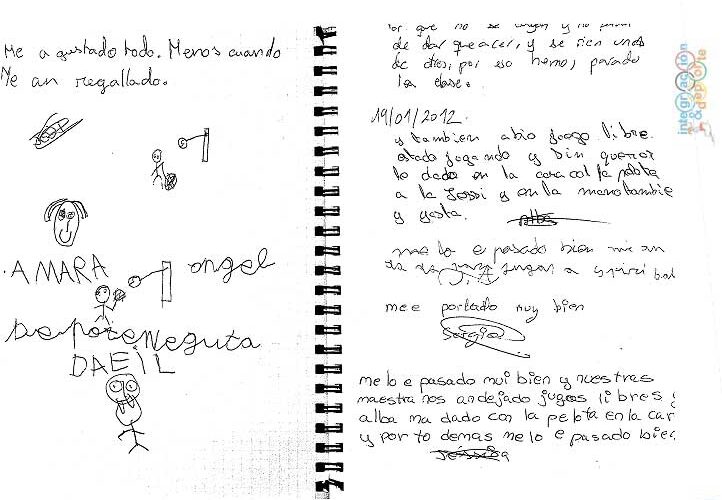 Me a gustado todo. Menos cuando
Me an regallado.
AMARA angel
DAEiL
por que no se y no paran
de dar queacer, y se rien unos
de otros, por eso hemos parado
la clase.
19/01/2012.
y tambien abio juego libre.
estado jugando y sin querer
lo dado en la cara col la pelota
a la Jessi y en la mano tambie
y yasta.
Alba
me lo e pasado bien me an
jugar a
mee portado muy bien
Sergio
me lo e pasado mui bien y nuestras
maestra nos andejado jugos libres
alba ma dado con la pelota en la car
y por to demas me lo e pasado bien
Jéssica
integración
& deporte